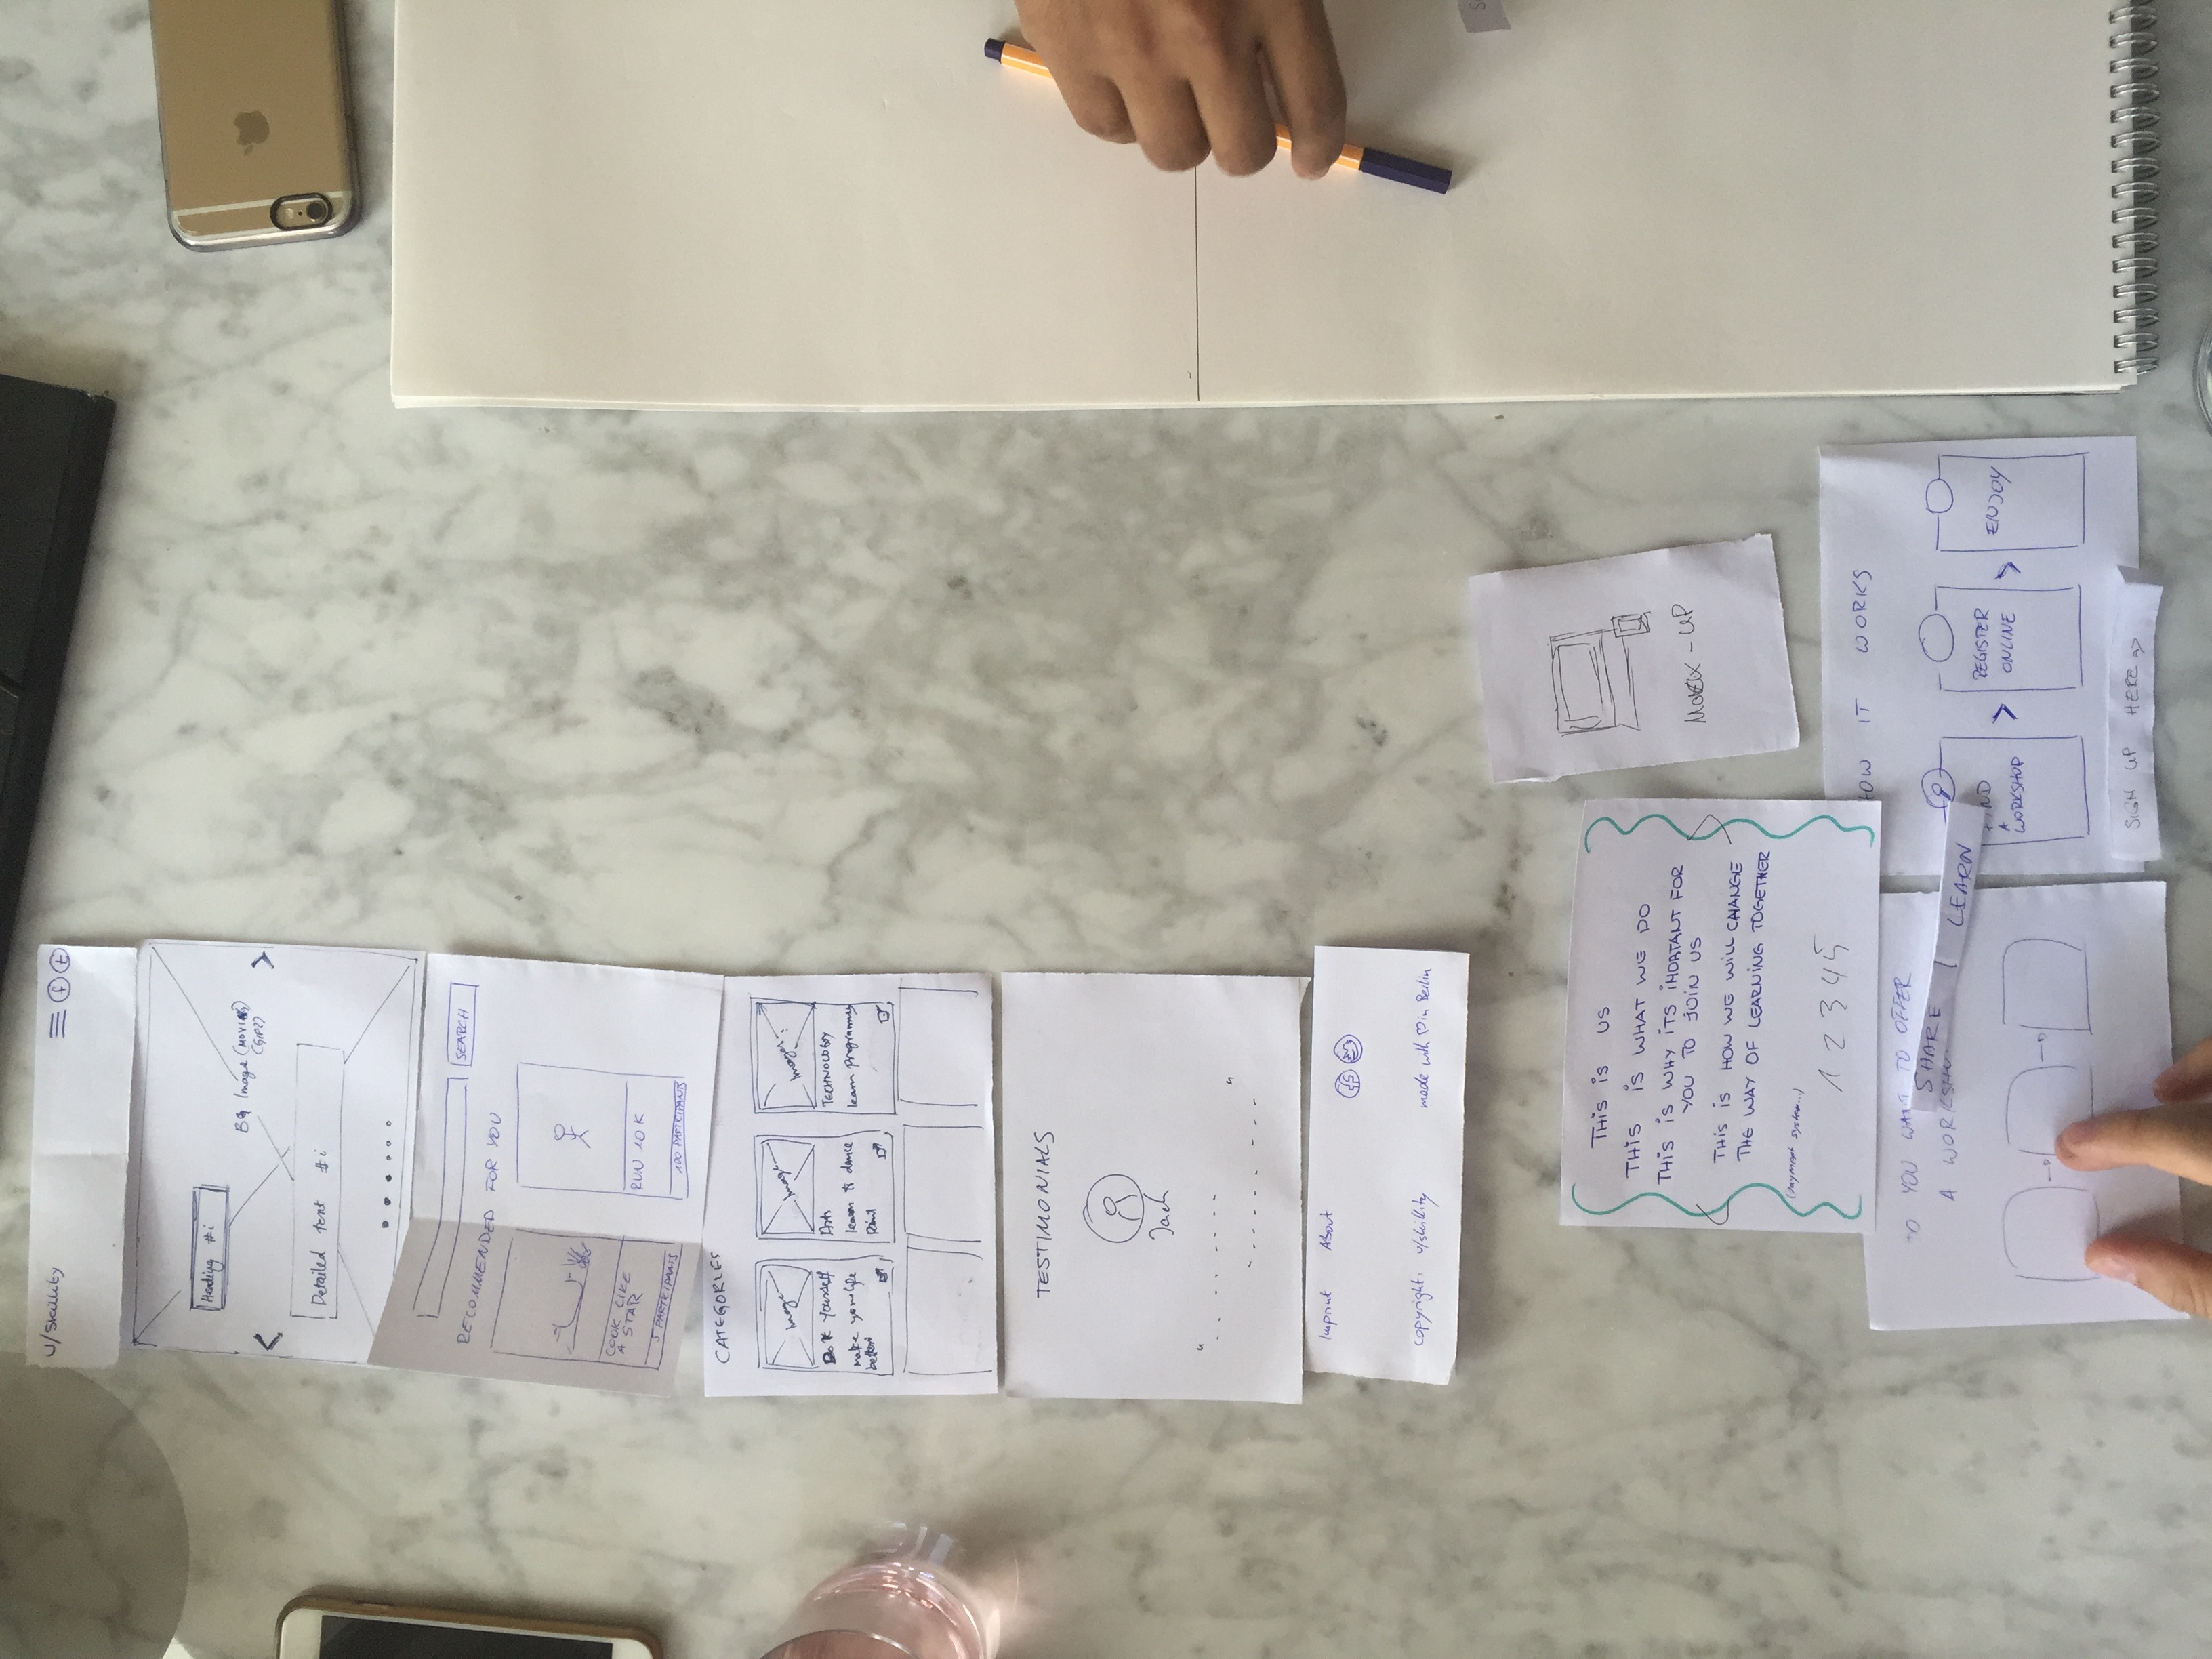 u/skillity
f t
Heading #i
BG Image (MOVING)
(GIF?)
Detailed text #i
SEARCH
RECOMMENDED FOR YOU
COOK LIKE
A STAR
5 PARTICIPANTS
RUN 10 K
100 PARTICIPANTS
CATEGORIES
Image
Do it yourself
make your life
better
Image
Arts
learn to dance
Paint
Images
TECHNOLOGY
learn programming
TESTIMONIALS
Jack
Imprint About
f
copyright: u/skillity
made with in Berlin
THIS IS US
THIS IS WHAT WE DO
THIS IS WHY ITS IMORTANT FOR
YOU TO JOIN US
THIS IS HOW WE WILL CHANGE
THE WAY OF LEARNING TOGETHER
(payment system...)
1 2 3 4 5
MOCK-UP
YOU WANT TO OFFER
A WORKSHO
SHARE | LEARN
HOW IT WORKS
FIND
A
WORKSHOP
>
REGISTER
ONLINE
>
ENJOY
SIGN UP HERE =>